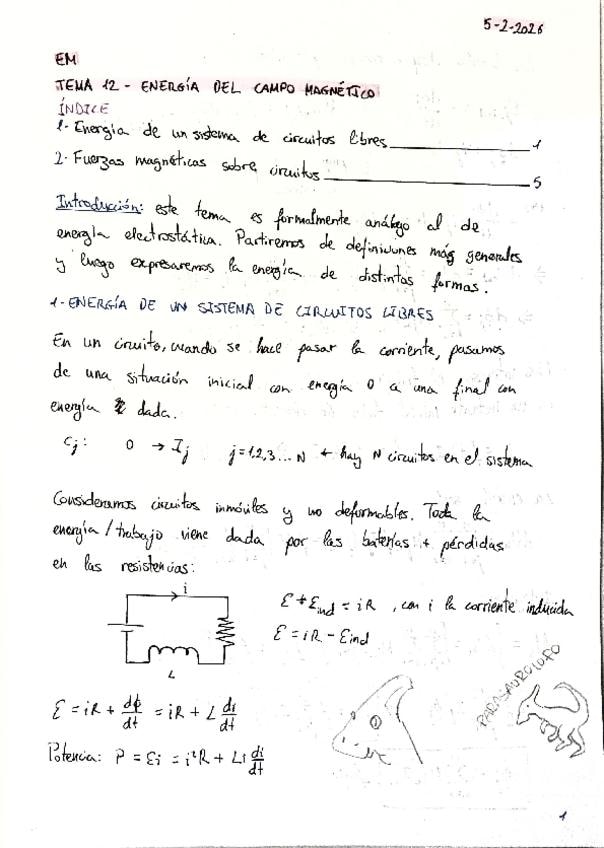 5-2-2026
EM
TEMA 12 - ENERGÍA DEL CAMPO MAGNÉTICO
ÍNDICE
1- Energía de un sistema de circuitos libres 1
2- Fuerzas magnéticas sobre circuitos 5
Introducción: este tema es formalmente análogo al de
energía electrostática. Partiremos de definiciones más generales
y luego expresaremos la energía de distintas formas.
1- ENERGÍA DE UN SISTEMA DE CIRCUITOS LIBRES
En un circuito, cuando se hace pasar la corriente, pasamos
de una situación inicial con energía 0 a una final con
energía dada.
Cj: 0 → Ij j=1,2,3...N + hay N circuitos en el sistema
Consideramos circuitos inmóviles y no deformables. Toda la
energía/trabajo viene dada por las baterías + pérdidas
en las resistencias:
i
L
ℰ + ℰind = iR, con i la corriente inducida
ℰ = iR - ℰind
ℰ = iR + dϕ/dt = iR + L di/dt
Potencia: P = ℰi = i²R + Li di/dt
PARASAUROLOFO
1